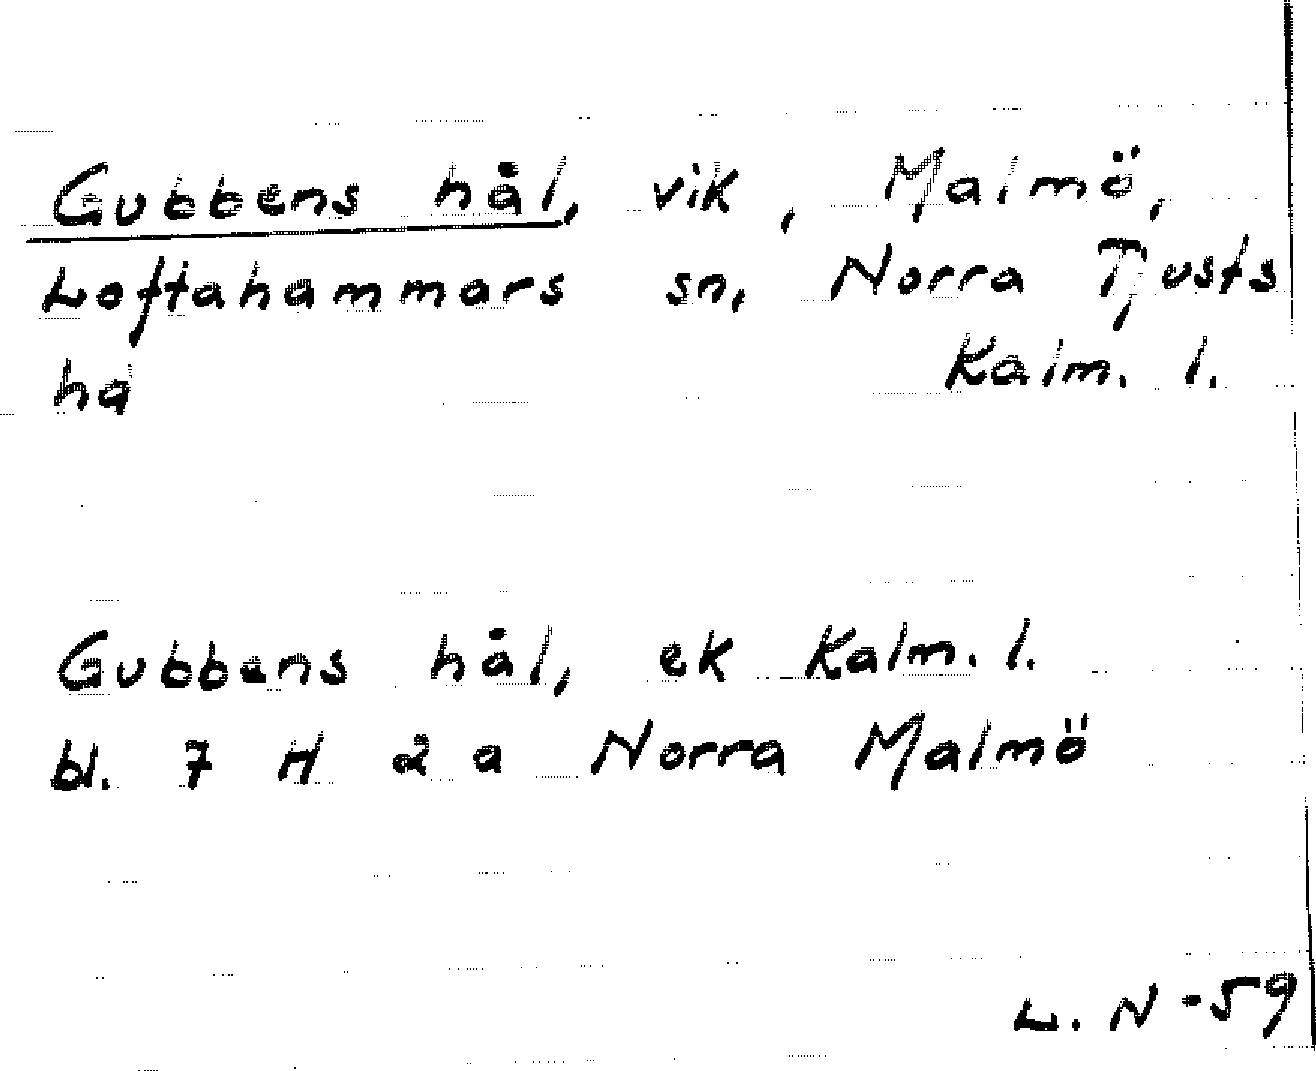 Gubbens hål, vik, Malmö,
Loftahammars sn, Norra Tjusts
hd Kalm. l.
Gubbens hål, ek Kalm. l.
bl. 7 H 2 a Norra Malmö
L. N -59